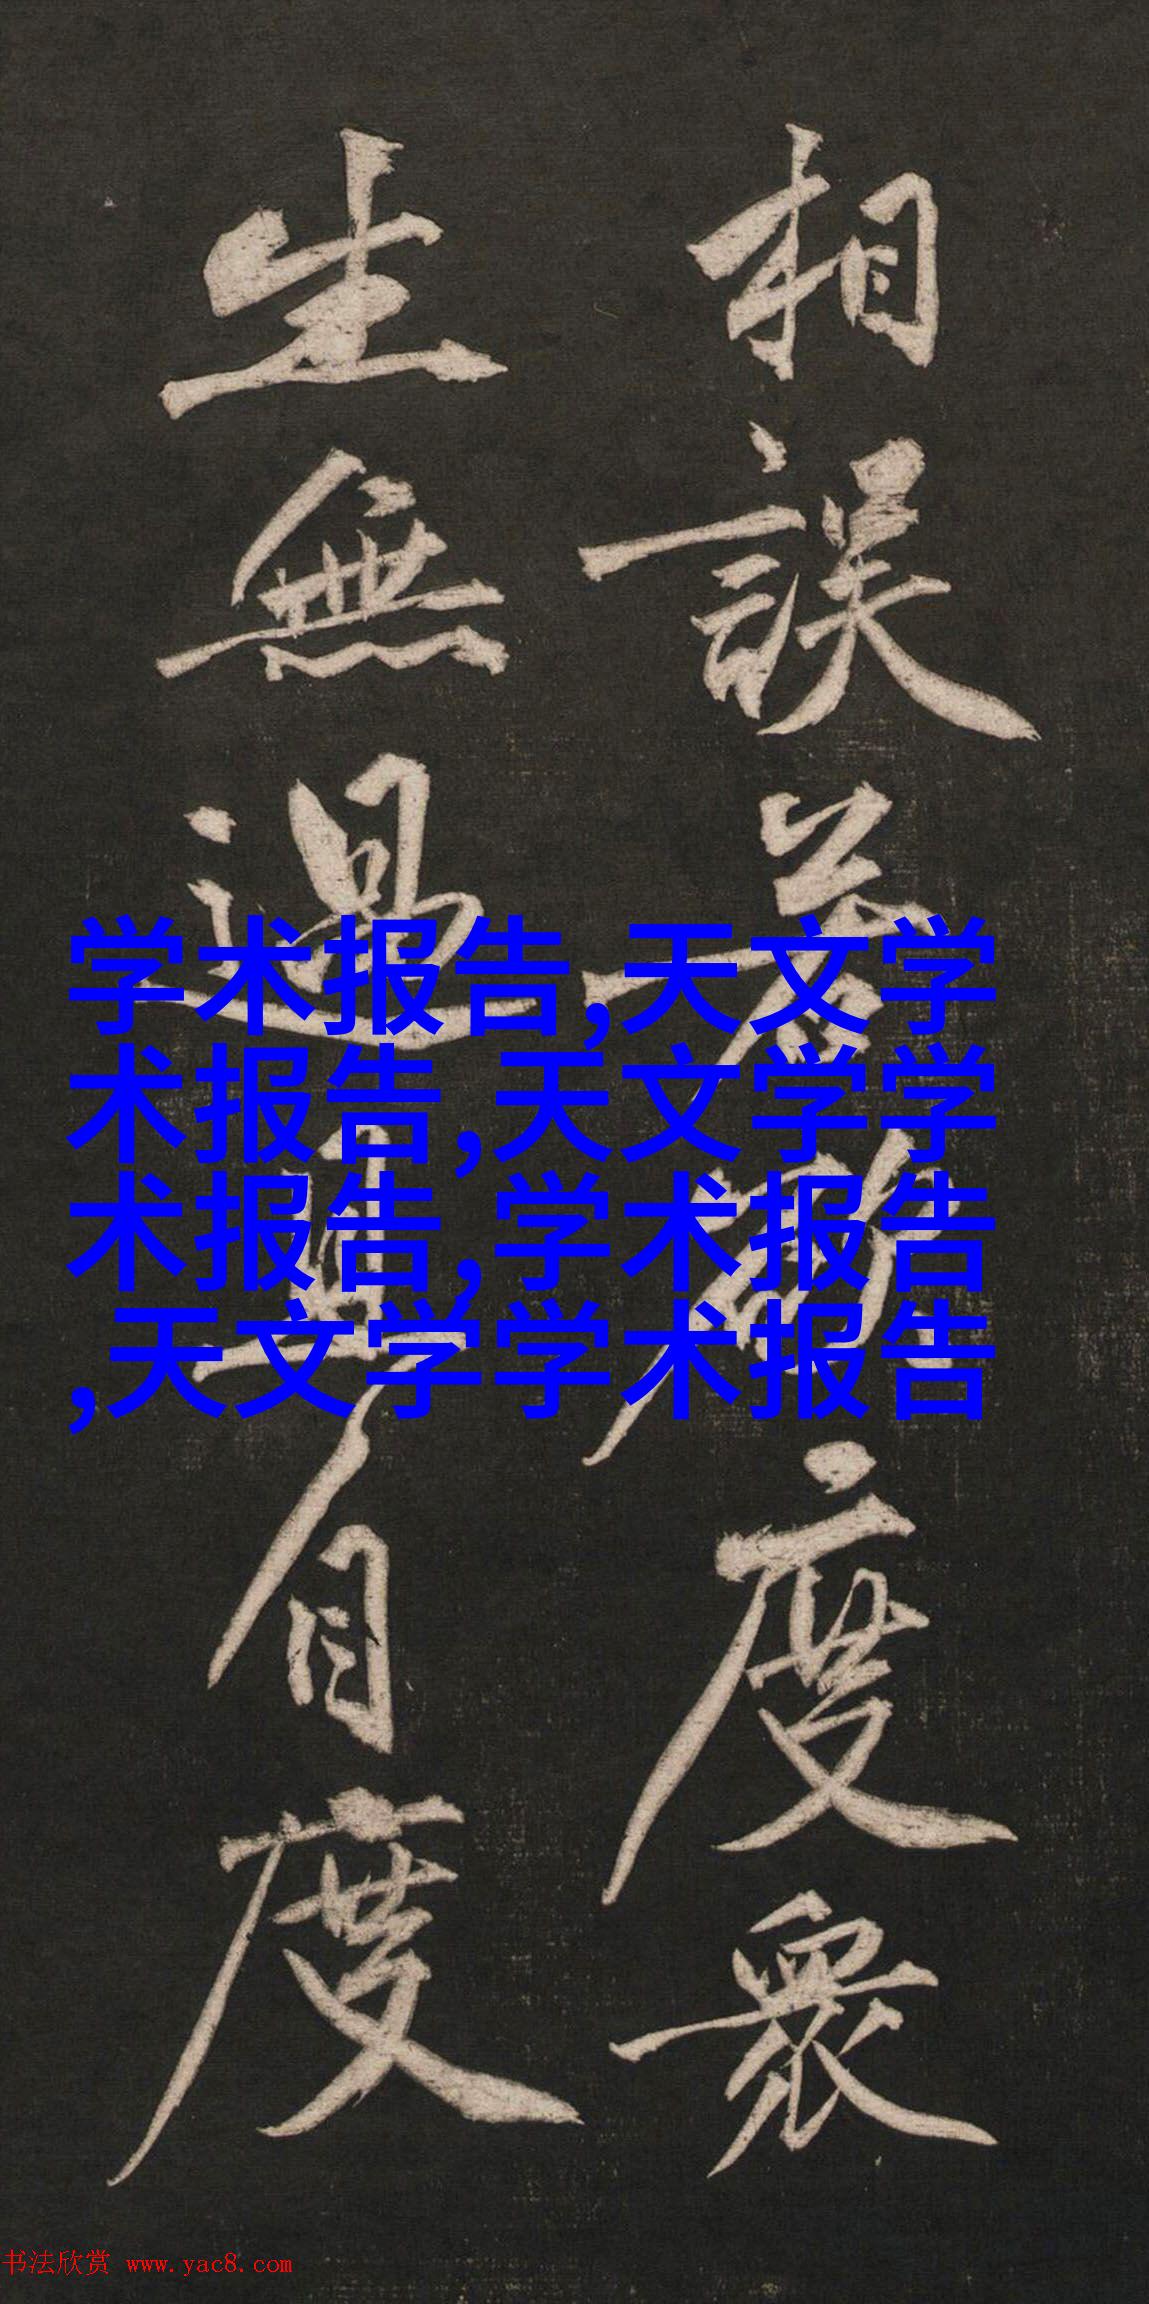 相誤若度衆
生無過且自度
学术报告,天文学
术报告,天文学学
术报告,学术报告
,天文学学术报告
书法欣赏 www.yac8.com